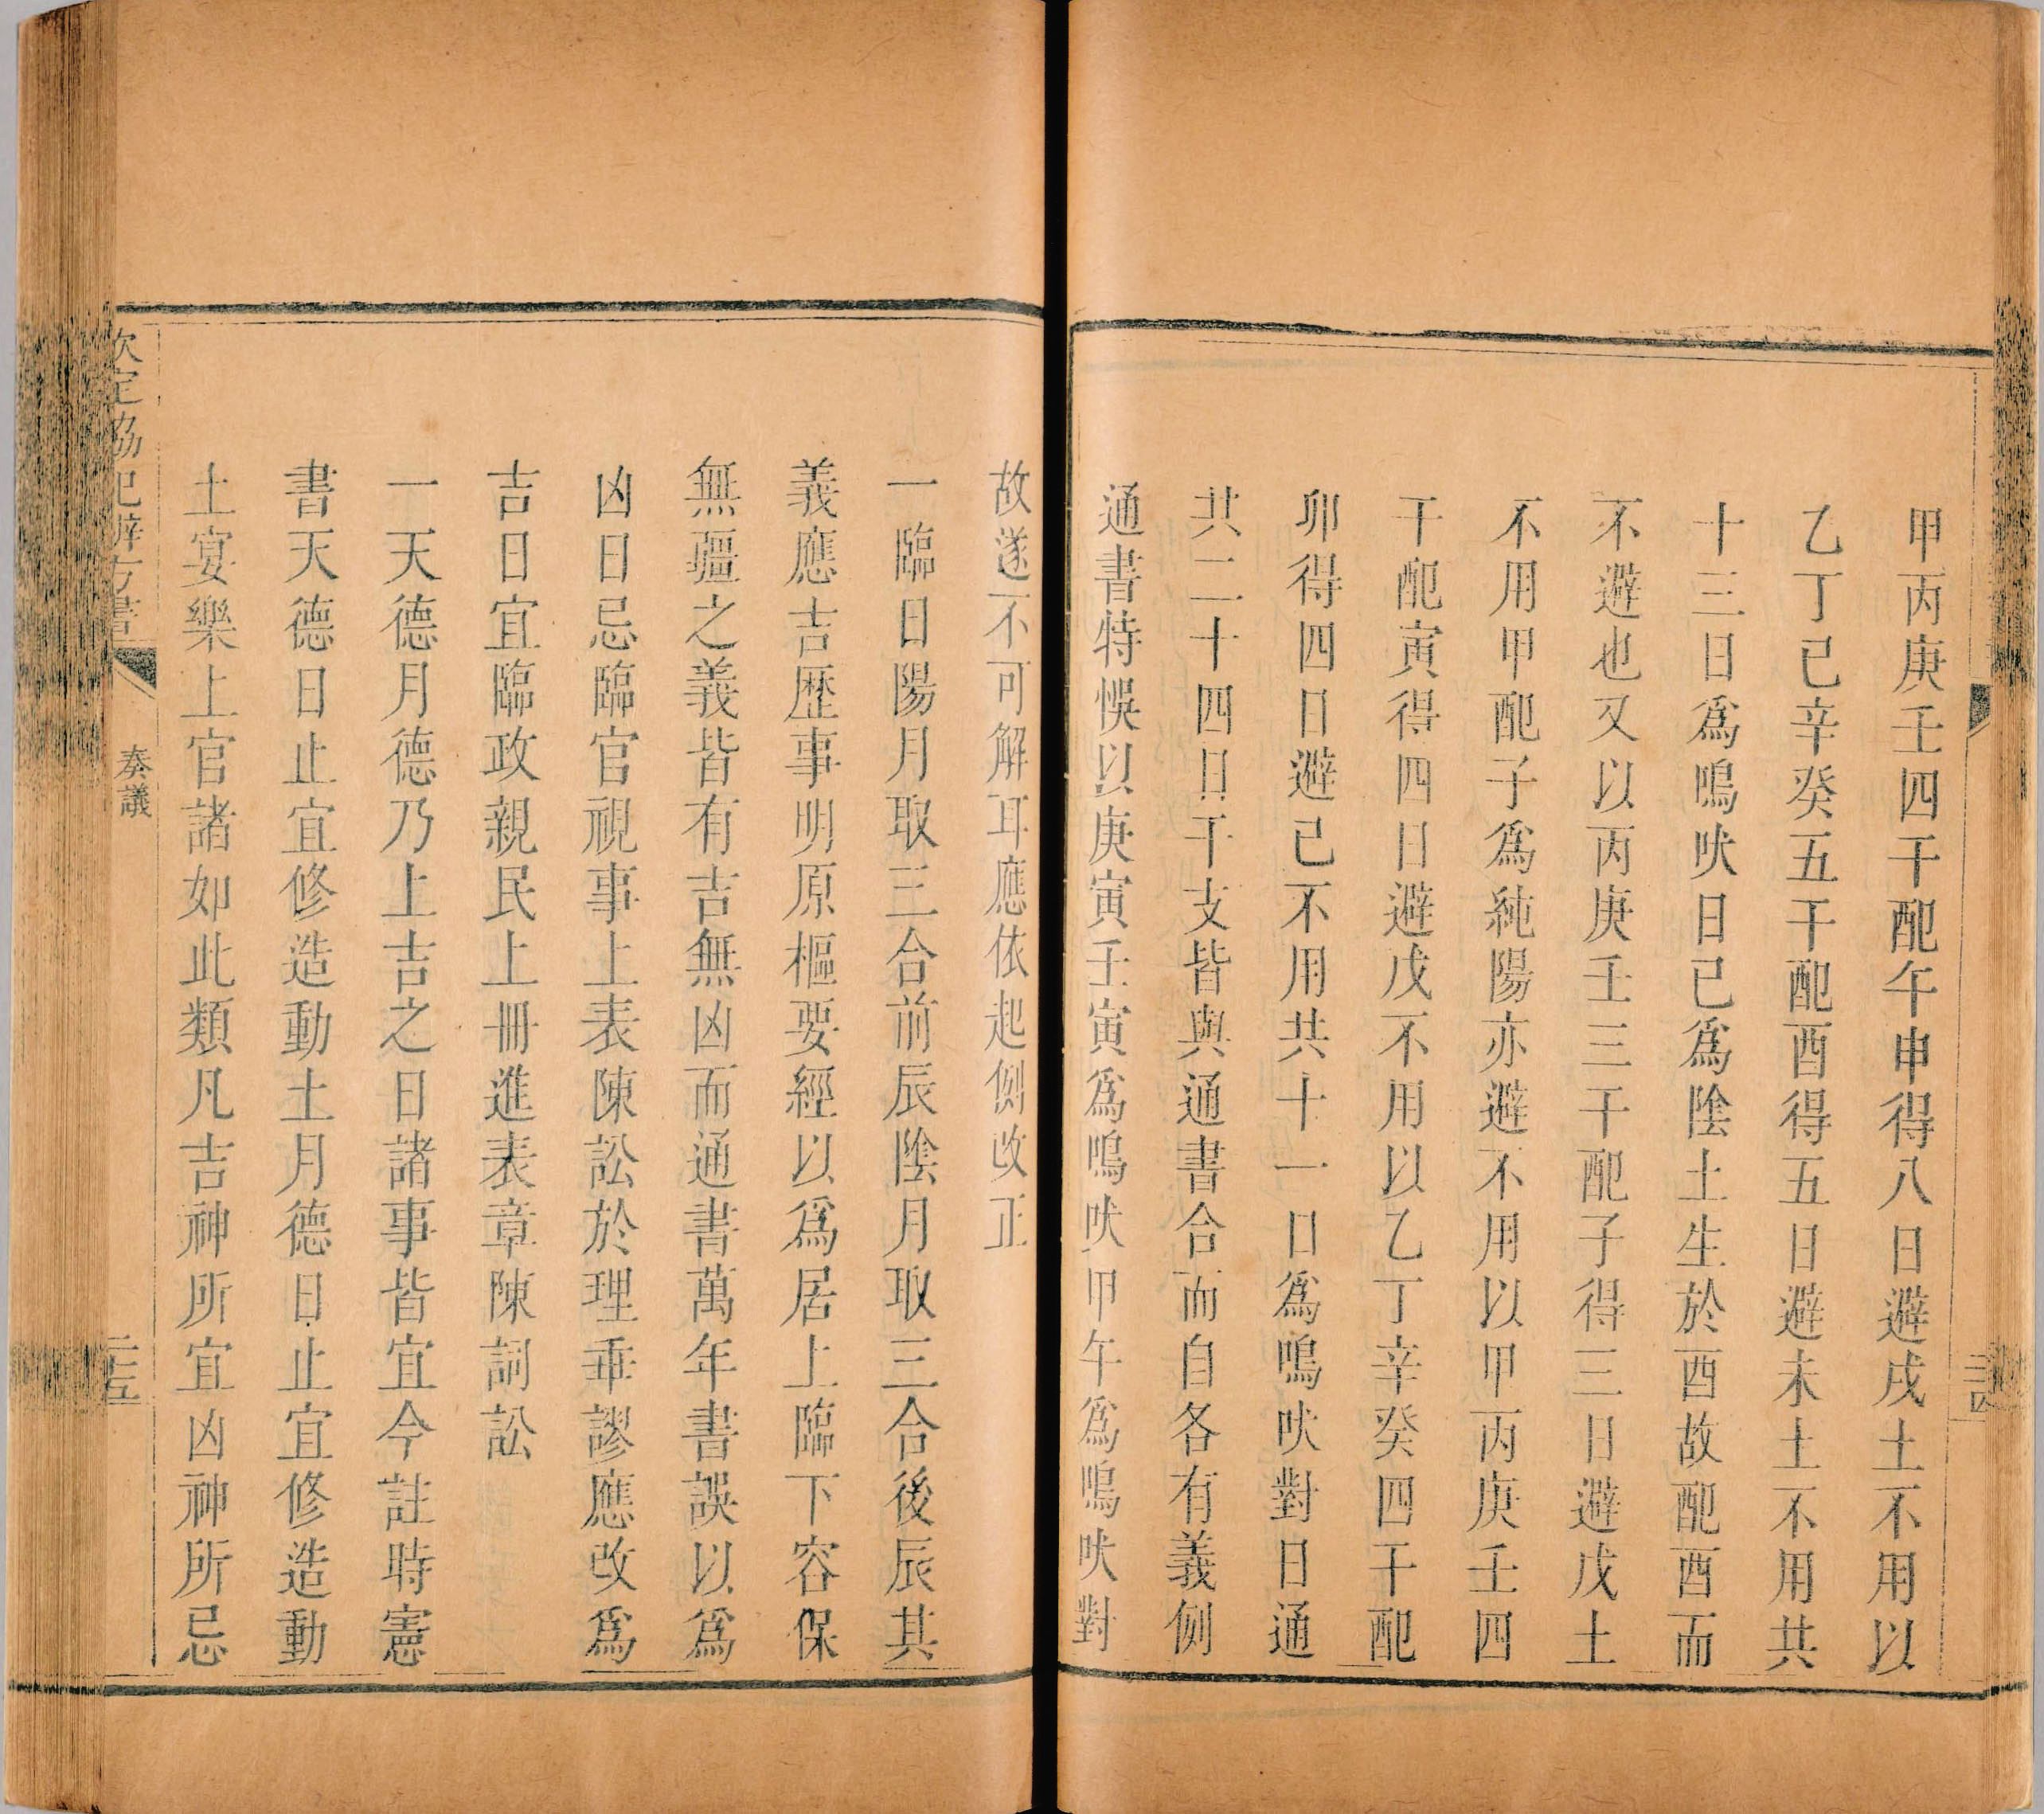 甲丙庚壬四干配午申得八日避戌土不用以
乙丁己辛癸五干配酉得五日避未土不用共
十三日爲鳴吠日已爲陰土生於酉故配酉而
不避也又以丙庚壬三干配子得三日避戊土
不用甲配子爲純陽亦避不用以甲丙庚壬四
干配寅得四日避戊不用以乙丁辛癸四干配
卯得四日避己不用共十一日爲鳴吠對日通
共二十四日干支皆與通書合而自各有義例
通書特悞以庚寅壬寅爲鳴吠甲午爲鳴吠對
故遂不可解耳應依起例改正
一臨日陽月取三合前辰陰月取三合後辰其
義應吉歷事明原樞要經以爲居上臨下容保
無疆之義皆有吉無凶而通書萬年書誤以爲
凶日忌臨官視事上表陳訟於理乖謬應改爲
吉日宜臨政親民上冊進表章陳詞訟
一天德月德乃上吉之日諸事皆宜今註時憲
書天德日止宜修造動土月德日止宜修造動
土宴樂上官諸如此類凡吉神所宜凶神所忌
欽定協紀辨方書
奏議
二十五